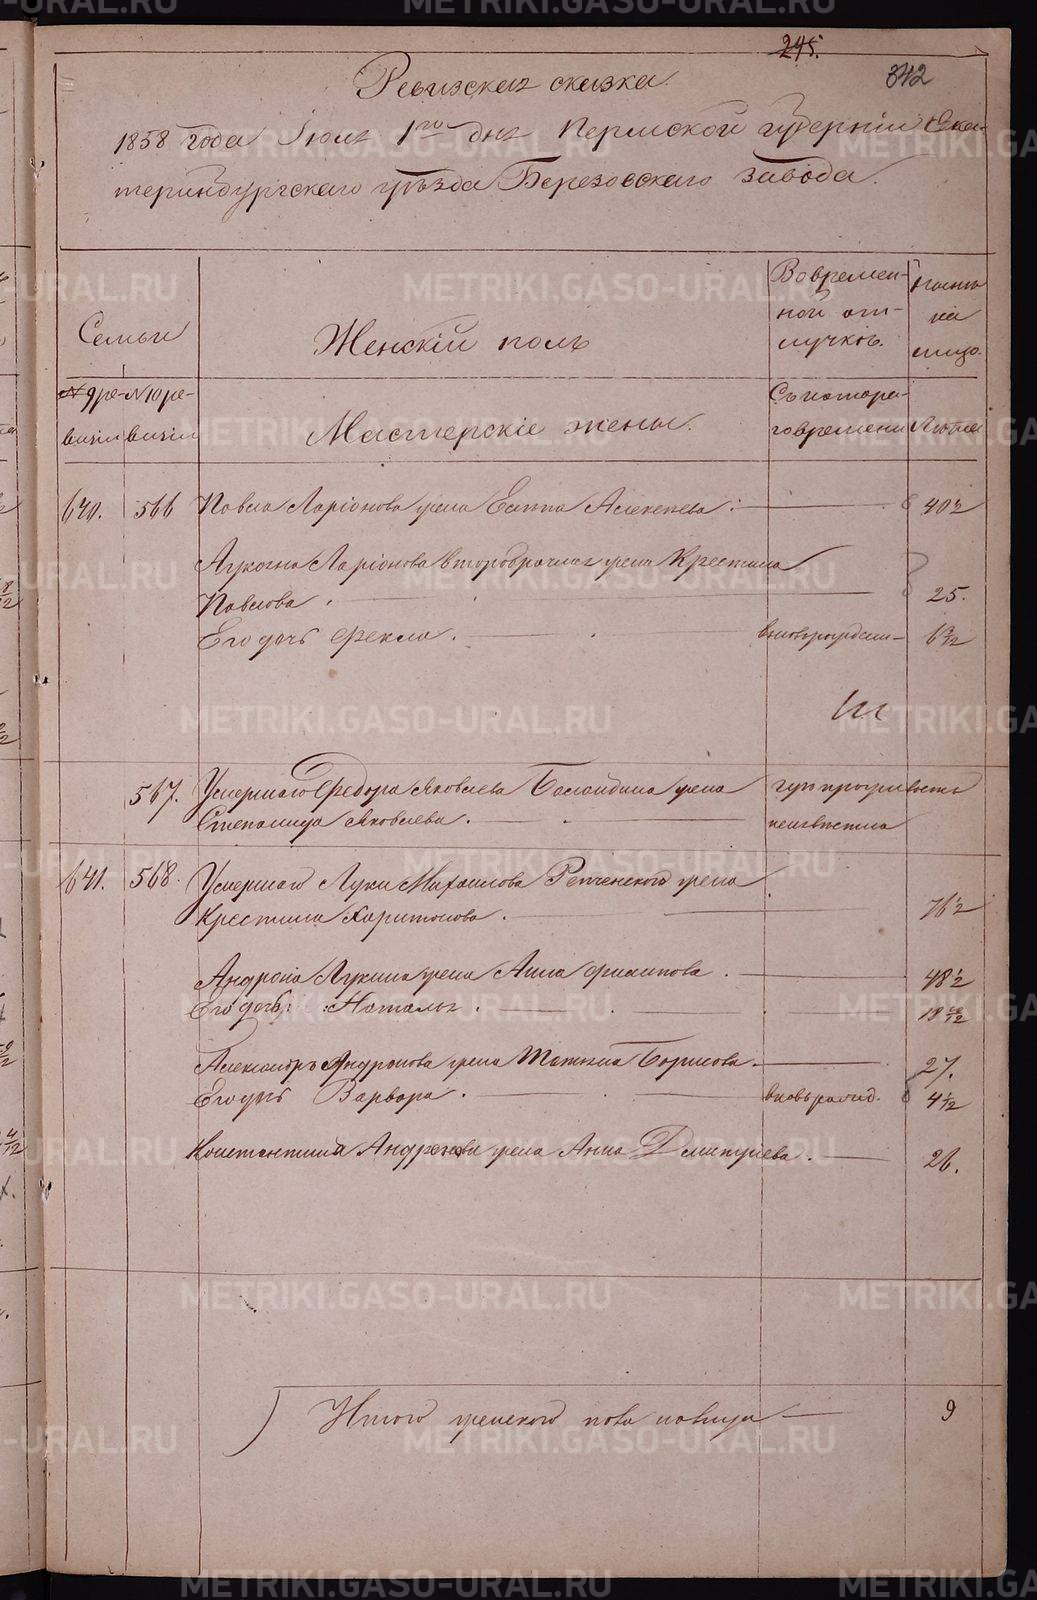 245.
342
Ревизская сказка
1858 года Июля 1го дня Пермской губернiи Ека-
теринбургскаго уѣзда Березовскаго завода.
Семьи
Женскiй полъ
Во времен-
ной от-
лучкѣ.
на
лицо.
№ 9 ре-
визiи
№ 10 ре-
визiи
Мастерскiе жены.
Съ котора-
го времени
Лѣта
640. 566 Павла Ларiонова жена Алексѣева 40½
Ларiонова второбрачная жена Крестина
Павлова. 25.
Его дочь Фекла. 6
567. Умершаго Федора Яковлева жена
Степанида Яковлева.
неизвѣстно
641. 568. Умершаго Луки Михайлова жена
Крестина Харитонова. 76½
Андрона Лукина жена Анна Филипова. 48½
Его дочь: Наталья. 18
Александръ Андронова жена Татьяна Борисова. 27.
Его дочь Варвара. 4
Константина Андронова жена Анна Дмитриева. 26.
Итого женского пола налицо 9
METRIKI.GASO-URAL.RU